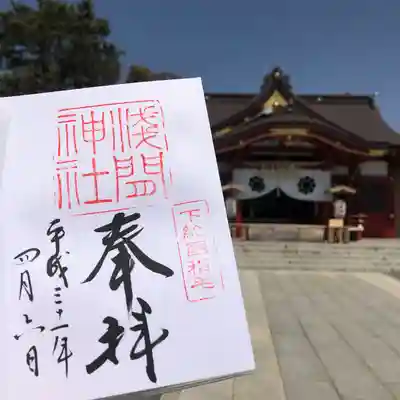 下総國稲毛
浅間神社
奉拝
平成三十一年
四月六日